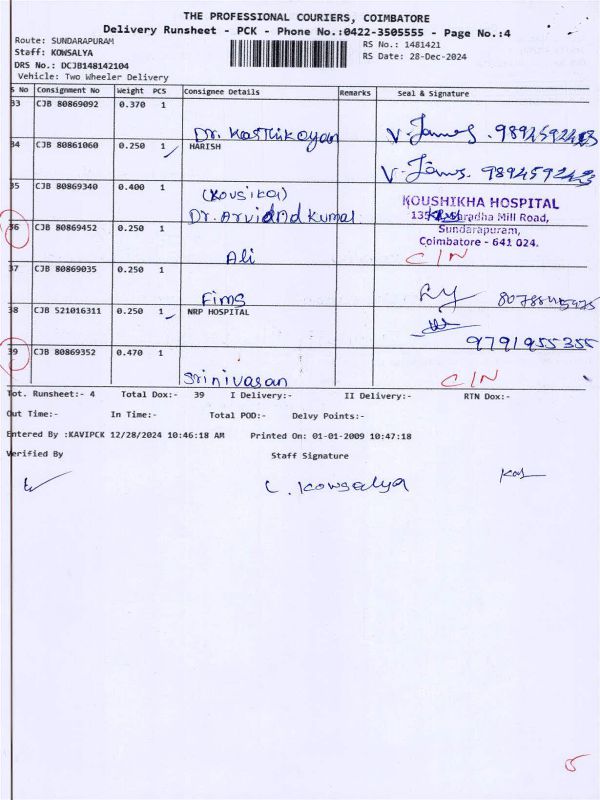 THE PROFESSIONAL COURIERS, COIMBATORE
Delivery Runsheet - PCK - Phone No.:0422-3505555 - Page No.:4
Route: SUNDARAPURAM
RS No.: 1481421
Staff: KOWSALYA
RS Date: 28-Dec-2024
DRS No.: DCJB148142104
Vehicle: Two Wheeler Delivery
S No Consignment No Weight PCS Consignee Details Remarks Seal & Signature
33 CJB 80869092 0.370 1
Dr. Karthikeyan V. James . 9894592423
34 CJB 80861060 0.250 1 HARISH
V. James. 9894592423
35 CJB 80869340 0.400 1 (Kousika)
Dr. Arvindkumar
KOUSHIKHA HOSPITAL
Mill Road,
Sundarapuram,
Coimbatore - 641 024.
36 CJB 80869452 0.250 1
Ali C/N
37 CJB 80869035 0.250 1
Fims
38 CJB 521016311 0.250 1 NRP HOSPITAL
9791955355
39 CJB 80869352 0.470 1
Srinivasan C/N
Tot. Runsheet:- 4 Total Dox:- 39 I Delivery:- II Delivery:- RTN Dox:-
Out Time:- In Time:- Total POD:- Delvy Points:-
Entered By :KAVIPCK 12/28/2024 10:46:18 AM Printed On: 01-01-2009 10:47:18
Verified By Staff Signature
C. Kowsalya
5